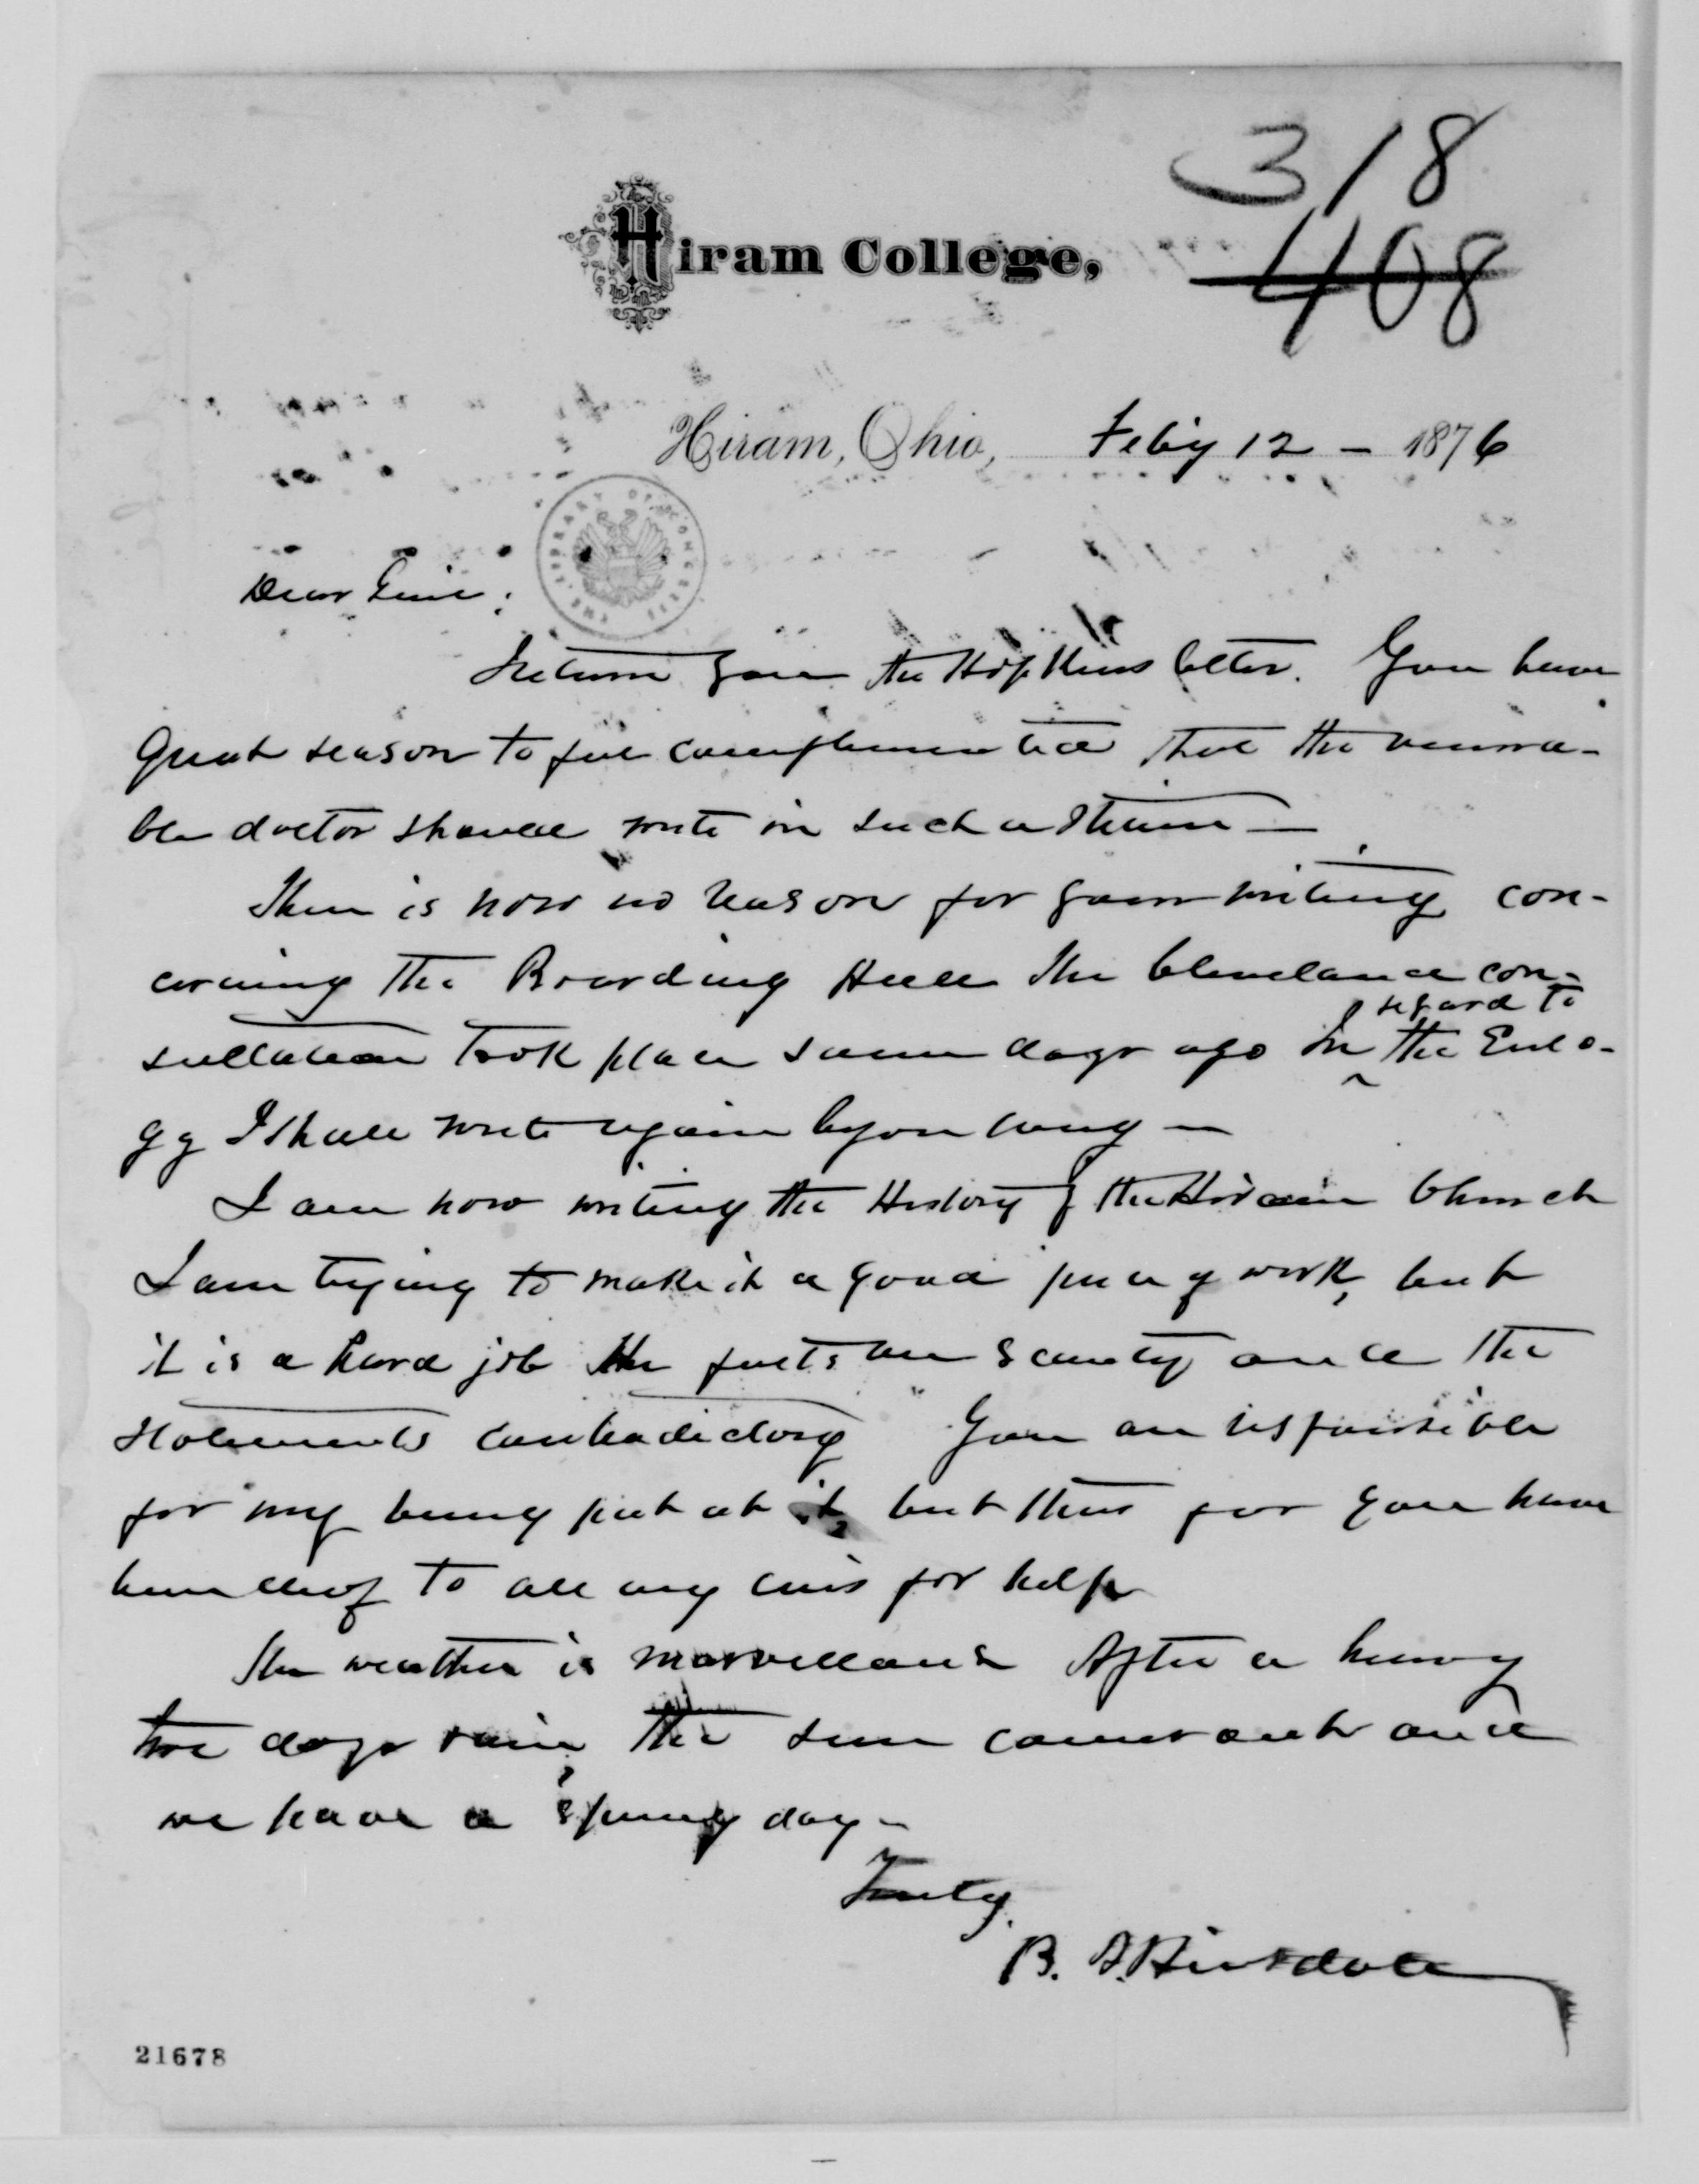 318
408
Hiram College,
Hiram, Ohio, Feby 12 - 1876
THE LIBRARY OF CONGRESS
Dear Genl:
I return you the Hopkins letter. You have
great reason to feel complimented that the venera-
ble doctor should write in such a strain -
There is now no reason for your writing con-
cerning the Boarding Hall The Cleveland con-
sultation took place some days ago In regard to the Eulo-
gy I shall write again before long -
I am now writing the History of the Hiram Church
I am trying to make it a good piece of work, but
it is a hard job The facts are scanty and the
statements contradictory You are responsible
for my being put at it, but thus far you have
been deaf to all my cries for help
The weather is marvellous After a heavy
two days rain, the sun comes out and
we have a spring day -
Truly,
B. A. Hinsdale
21678